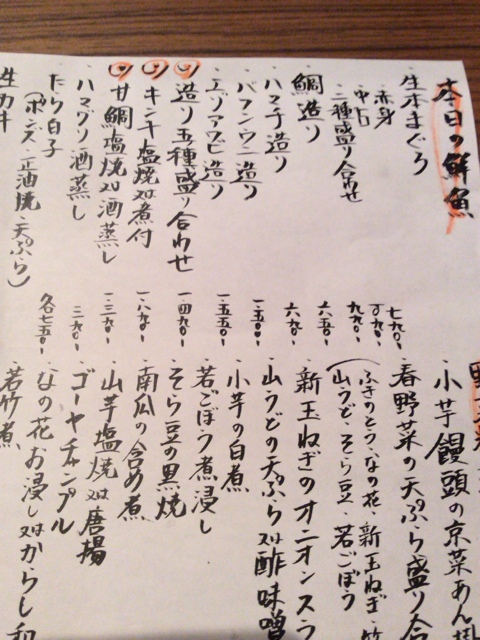 本日の鮮魚
・生本まぐろ
赤身 七九〇-
中トロ
二種盛り合わせ 九九〇-
・鯛造り 六五〇-
・ハマチ造り 六九〇-
・バフンウニ造り 一、五〇〇-
・エゾアワビ造り 一、五五〇-
・造り五種盛り合わせ 一、四九〇-
・キンキ塩焼又は煮付 一、八九〇-
・甘鯛塩焼又は酒蒸し 一、三九〇-
・ハマグリ酒蒸し
・たら白子
(ポンズ・正油焼・天ぷら) 各七五〇-
・生カキ
・小芋饅頭の京菜あん
・春野菜の天ぷら盛り合
(ふきのとう・なの花・新玉ねぎ・竹
山うど・そら豆・若ごぼう
・新玉ねぎのオニオンスラ
・山うどの天ぷら又は酢味噌
・小芋の白煮
・若ごぼう煮浸し
・そら豆の黒焼
・南瓜の含め煮
・山芋塩焼又は唐揚
・ゴーヤチャンプル
・なの花お浸し又はからし和
・若竹煮